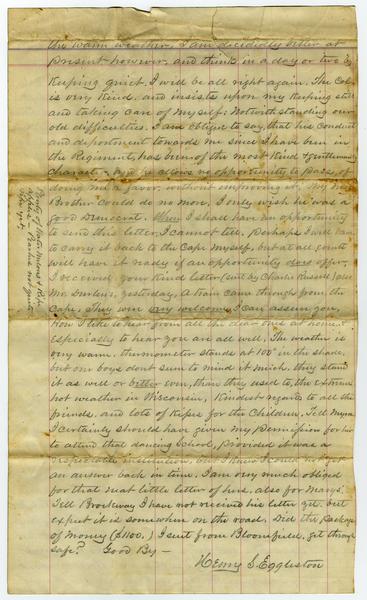 the warm weather. I am decidedly better at
present however, and think in a day or two by
keeping quiet, I will be all right again. The Col.
is very kind, and insists upon my keeping still
and taking care of myself. Notwithstanding our
old difficulties, I am obliged to say, that his conduct
and deportment towards me since I have been in
the Regiment, has been of the most kind & gentlemanly
Character and he allows no opportunity to pass, of
doing me a favor, without improving it. My own
Brother could do no more. I only wish he was a
good Democrat. When I shall have an opportunity
to send this letter, I cannot tell. Perhaps I will have
to carry it back to the Cape myself, but at all events
will have it ready if an opportunity does offer.
I received your kind letters (sent by Charlie Russell) &
Mr. yesterday. A train came through from the
Cape. They were very welcome I can assure you.
How I like to hear from all the dear ones at home, &
especially to hear you are all well. The weather is
very warm, thermometer stands at 100° in the shade,
but our boys dont seem to mind it much. they stand
it as well or better even, than they used to, the extreme
hot weather in Wisconsin. Kindest regards to all the
friends, and lots of kisses for the Children. Tell Myra
I certainly should have given my permission for her
to attend that dancing School, provided it was a
respectable institution, but I knew I could not get
an answer back in time. I am very much obliged
for that neat little letter of hers, also for Marys'.
Tell Brockway I have not received his letter yet, but
expect it is somewhere on the road. Did the package
of money ($1100.) I sent from Bloomfield, get through
safe? Good Bye —
Henry S. Eggleston
Plenty of Water Melons & Ripe
Apples. Peaches not quite
ripe yet.